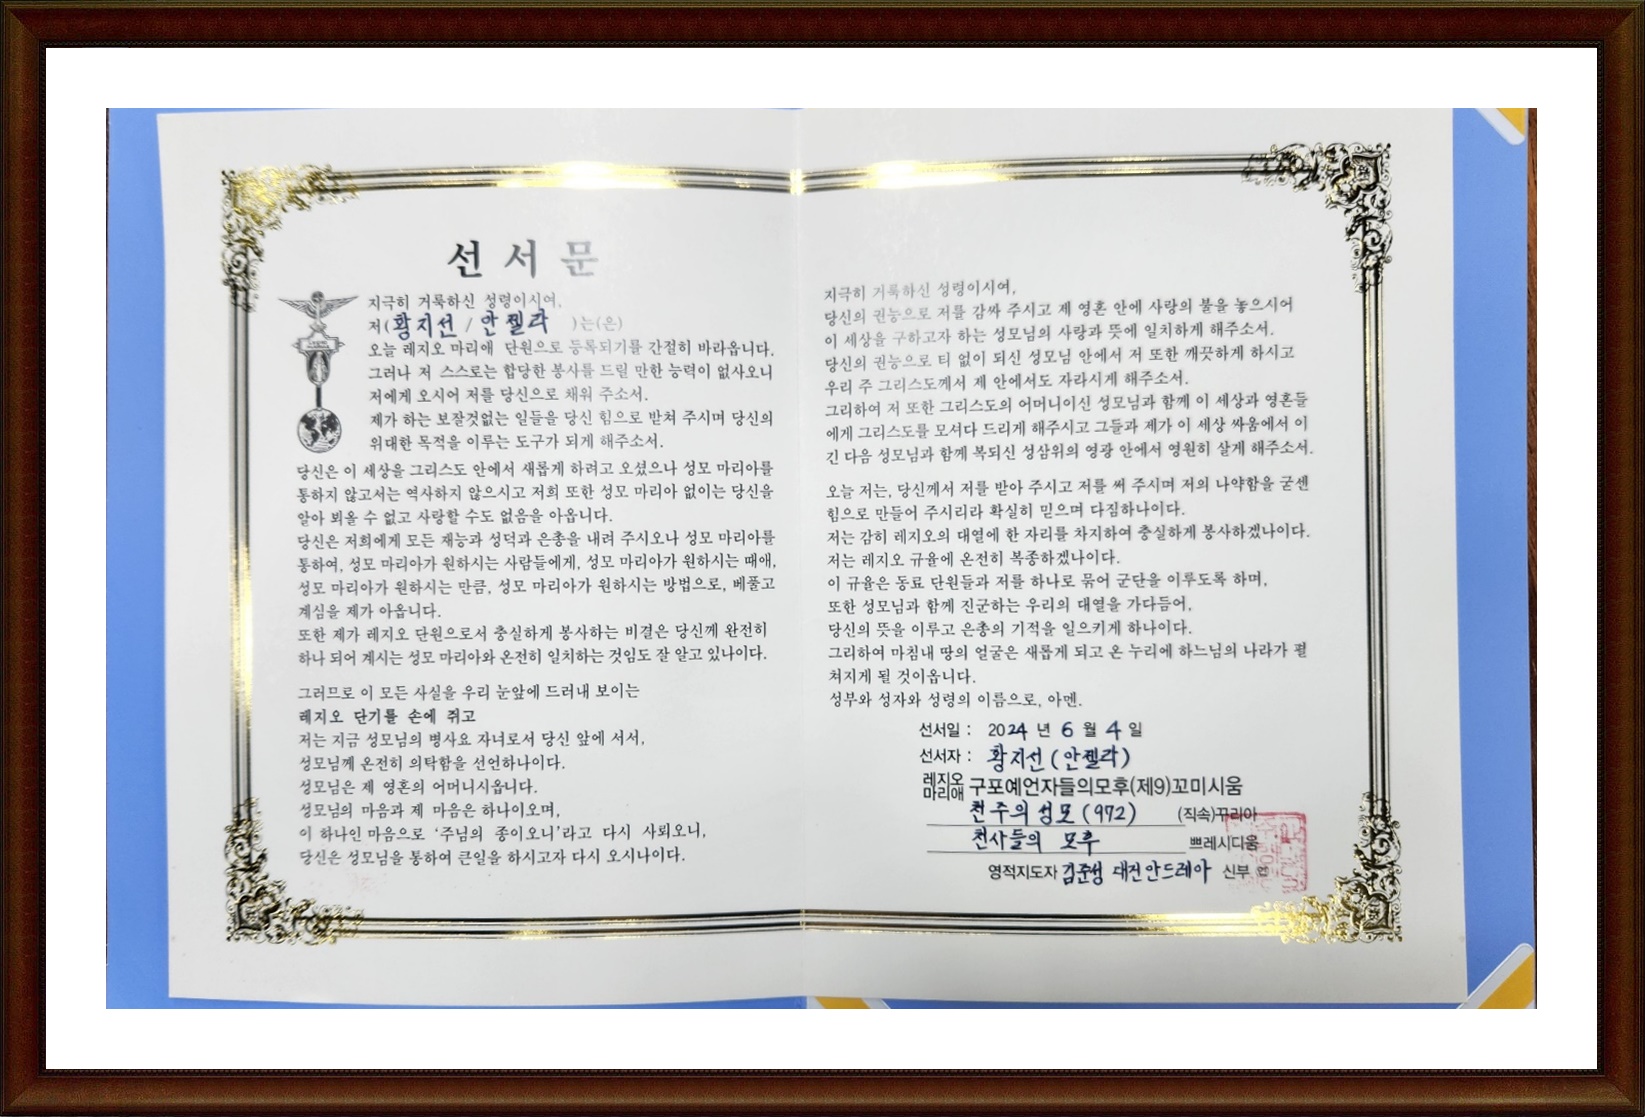 선서문
지극히 거룩하신 성령이시여,
저(황지선 / 안젤라 )는(은)
오늘 레지오 마리애 단원으로 등록되기를 간절히 바라옵니다.
그러나 저 스스로는 합당한 봉사를 드릴 만한 능력이 없사오니
저에게 오시어 저를 당신으로 채워 주소서.
제가 하는 보잘것없는 일들을 당신 힘으로 받쳐 주시며 당신의
위대한 목적을 이루는 도구가 되게 해주소서.
당신은 이 세상을 그리스도 안에서 새롭게 하려고 오셨으나 성모 마리아를
통하지 않고서는 역사하지 않으시고 저희 또한 성모 마리아 없이는 당신을
알아 뵈올 수 없고 사랑할 수도 없음을 아옵니다.
당신은 저희에게 모든 재능과 성덕과 은총을 내려 주시오나 성모 마리아를
통하여, 성모 마리아가 원하시는 사람들에게, 성모 마리아가 원하시는 때에,
성모 마리아가 원하시는 만큼, 성모 마리아가 원하시는 방법으로, 베풀고
계심을 제가 아옵니다.
또한 제가 레지오 단원으로서 충실하게 봉사하는 비결은 당신께 완전히
하나 되어 계시는 성모 마리아와 온전히 일치하는 것임도 잘 알고 있나이다.
그러므로 이 모든 사실을 우리 눈앞에 드러내 보이는
레지오 단기를 손에 쥐고
저는 지금 성모님의 병사요 자녀로서 당신 앞에 서서,
성모님께 온전히 의탁함을 선언하나이다.
성모님은 제 영혼의 어머니시옵니다.
성모님의 마음과 제 마음은 하나이오며,
이 하나인 마음으로 ‘주님의 종이오니’라고 다시 사뢰오니,
당신은 성모님을 통하여 큰일을 하시고자 다시 오시나이다.
지극히 거룩하신 성령이시여,
당신의 권능으로 저를 감싸 주시고 제 영혼 안에 사랑의 불을 놓으시어
이 세상을 구하고자 하는 성모님의 사랑과 뜻에 일치하게 해주소서.
당신의 권능으로 티 없이 되신 성모님 안에서 저 또한 깨끗하게 하시고
우리 주 그리스도께서 제 안에서도 자라시게 해주소서.
그리하여 저 또한 그리스도의 어머니이신 성모님과 함께 이 세상과 영혼들
에게 그리스도를 모셔다 드리게 해주시고 그들과 제가 이 세상 싸움에서 이
긴 다음 성모님과 함께 복되신 성삼위의 영광 안에서 영원히 살게 해주소서.
오늘 저는, 당신께서 저를 받아 주시고 저를 써 주시며 저의 나약함을 굳센
힘으로 만들어 주시리라 확실히 믿으며 다짐하나이다.
저는 감히 레지오의 대열에 한 자리를 차지하여 충실하게 봉사하겠나이다.
저는 레지오 규율에 온전히 복종하겠나이다.
이 규율은 동료 단원들과 저를 하나로 묶어 군단을 이루도록 하며,
또한 성모님과 함께 진군하는 우리의 대열을 가다듬어,
당신의 뜻을 이루고 은총의 기적을 일으키게 하나이다.
그리하여 마침내 땅의 얼굴은 새롭게 되고 온 누리에 하느님의 나라가 펼
쳐지게 될 것이옵니다.
성부와 성자와 성령의 이름으로, 아멘.
선서일 : 2024 년 6 월 4 일
선서자 : 황지선(안젤라)
레지오 마리애 구포예언자들의모후(제9)꼬미시움
천주의 성모(972) (직속)꾸리아
천사들의 모후 쁘레시디움
영적지도자 김준성 대건안드레아 신부